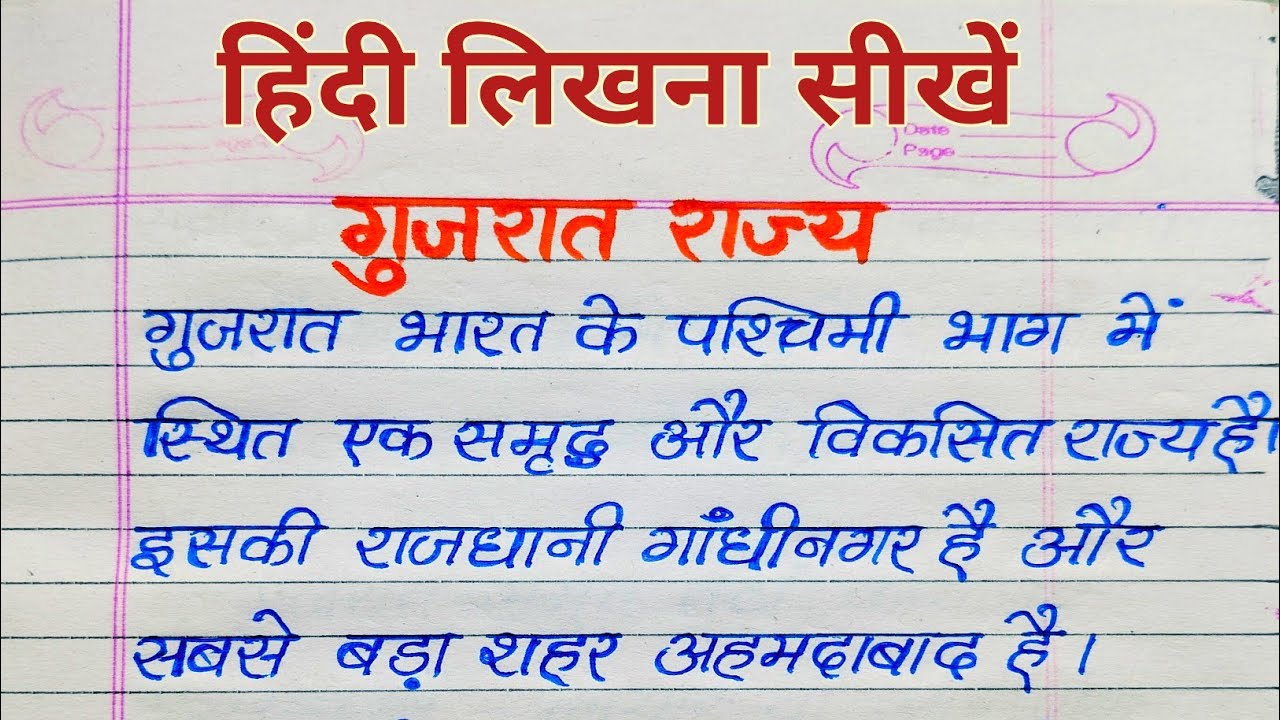 हिंदी लिखना सीखें
Date
Page
गुजरात राज्य
गुजरात भारत के पश्चिमी भाग में
स्थित एक समृद्ध और विकसित राज्य है।
इसकी राजधानी गाँधीनगर है और
सबसे बड़ा शहर अहमदाबाद है।